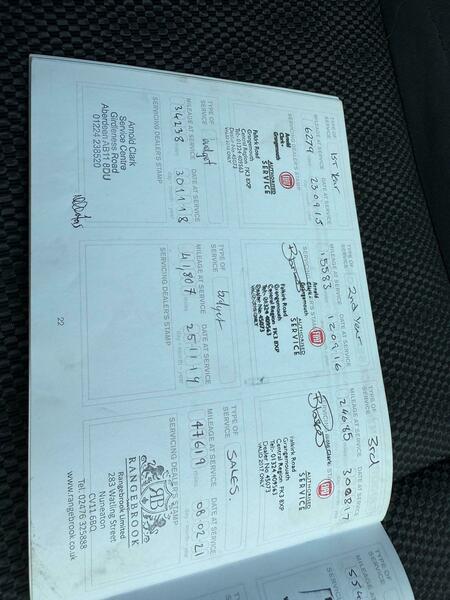 TYPE OF SERVICE 1st Year
MILEAGE AT SERVICE DATE AT SERVICE
6279 23.09.15
SERVICING DEALER'S STAMP
Arnold
Clark
Grangemouth
FIAT
AUTHORISED
SERVICE
Falkirk Road
Grangemouth
Central Region FK3 8XP
Tel: 01324 409563
Dealer No 45073
TYPE OF SERVICE 2nd Year
MILEAGE AT SERVICE DATE AT SERVICE
15583 12.09.16
SERVICING DEALER'S STAMP
Arnold
Clark
Grangemouth
FIAT
AUTHORISED
SERVICE
Falkirk Road
Grangemouth
Central Region FK3 8XP
Tel: 01324 409563
Dealer No 45073
TYPE OF SERVICE 3rd
MILEAGE AT SERVICE DATE AT SERVICE
24685 30.08.17
FIAT
AUTHORISED
SERVICE
Falkirk Road
Grangemouth
Central Region FK3 8XP
Tel: 01324 409563
Dealer No 45073
VALID 2017 ONLY
TYPE OF SERVICE budget
MILEAGE AT SERVICE DATE AT SERVICE
34238 30.11.18
SERVICING DEALER'S STAMP
Arnold Clark
Service Centre
Girdleness Road
Aberdeen AB11 8DU
01224 238520
TYPE OF SERVICE budget
MILEAGE AT SERVICE DATE AT SERVICE
41,807 25.11.19
SERVICING DEALER'S STAMP
TYPE OF SERVICE SALES.
MILEAGE AT SERVICE DATE AT SERVICE
47619 08.02.21
SERVICING DEALER'S STAMP
RB
RANGEBROOK
Rangebrook Limited
283 Watling Street
Nuneaton
CV11 6BQ
Tel. 02476 325888
www.rangebrook.co.uk
22
MILEAGE AT SERVICE